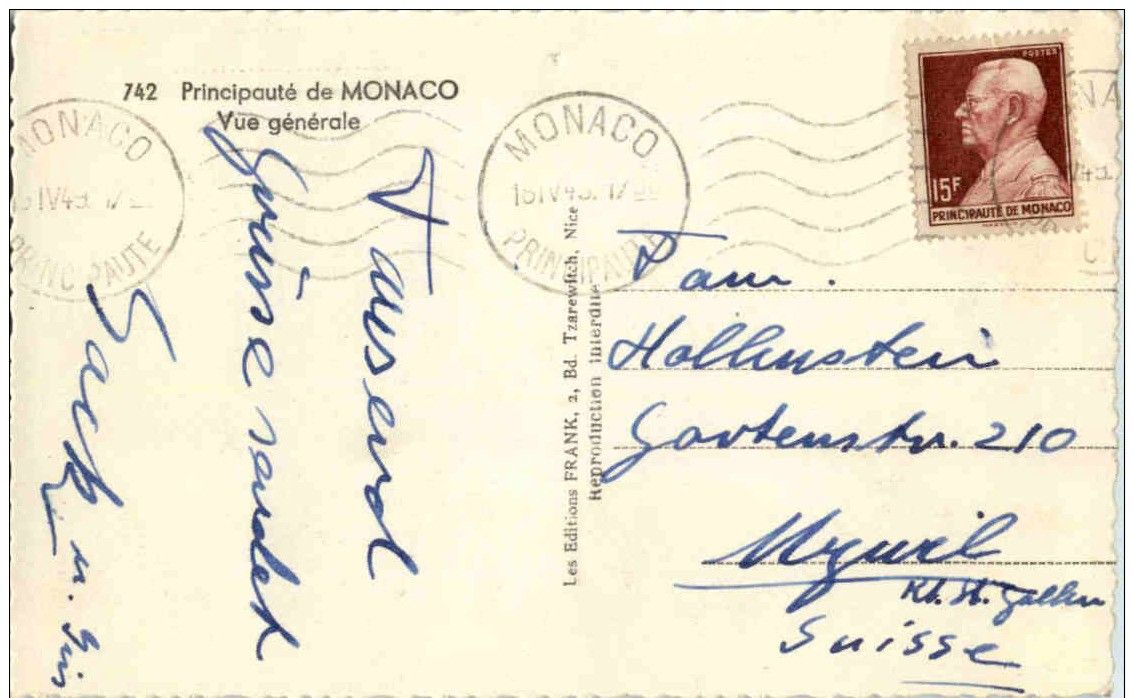 742 Principauté de MONACO
Vue générale
MONACO
PRINCIPAUTE
MONACO
PRINCIPAUTE
15F
POSTES
PRINCIPAUTÉ DE MONACO
Tausend
Grüsse sendet
u.
Les Editions FRANK, 2, Bd. Tzarewitch, Nice
Reproduction interdite
Fam.
Hollenstein
Gartenstr. 210
Uzwil
Kt. St. Gallen
Suisse